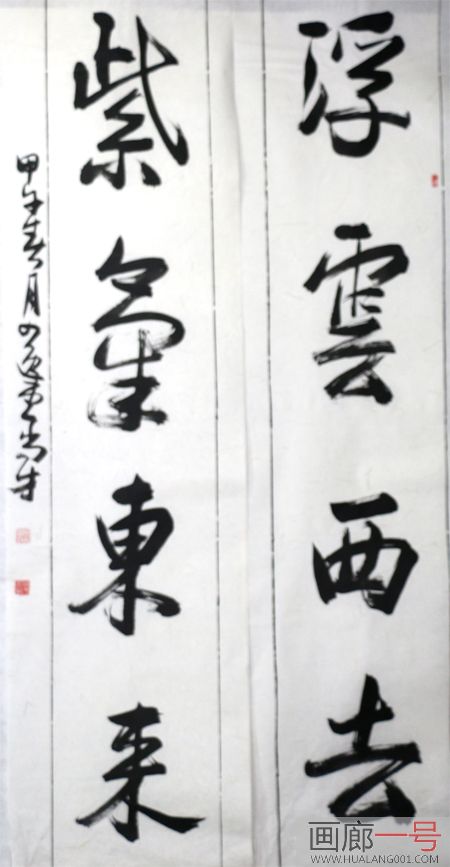 浮雲西去
紫氣東来
甲午春月
画廊一号
WWW.HUALANG001.COM